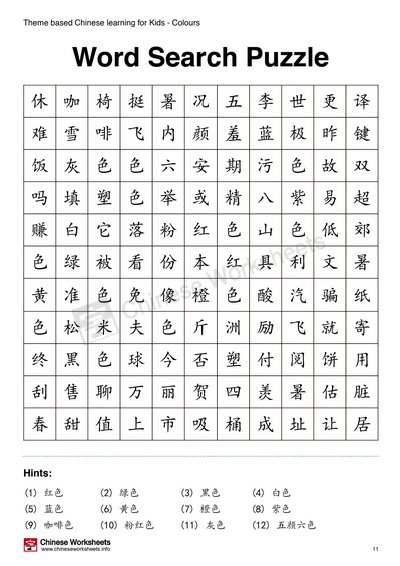 Theme based Chinese learning for Kids - Colours
Word Search Puzzle
休 咖 椅 挺 暑 况 五 李 世 更 译
难 雪 啡 飞 内 颜 羞 蓝 极 昨 键
饭 灰 色 色 六 安 期 污 色 故 双
吗 填 塑 色 举 或 精 八 紫 易 超
赚 白 它 落 粉 红 色 山 色 低 郊
色 绿 被 看 份 本 红 具 利 文 暑
黄 准 色 免 像 橙 色 酸 汽 骗 纸
色 松 米 夫 色 斤 洲 励 飞 就 寄
终 黑 色 球 今 否 塑 付 阅 饼 用
刮 售 聊 万 丽 贺 四 羡 暑 估 脏
春 甜 值 上 市 吸 桶 成 址 让 居
Chinese Worksheets
Hints:
(1) 红色 (2) 绿色 (3) 黑色 (4) 白色
(5) 蓝色 (6) 黄色 (7) 橙色 (8) 紫色
(9) 咖啡色 (10) 粉红色 (11) 灰色 (12) 五颜六色
Chinese Worksheets
www.chineseworksheets.info
11